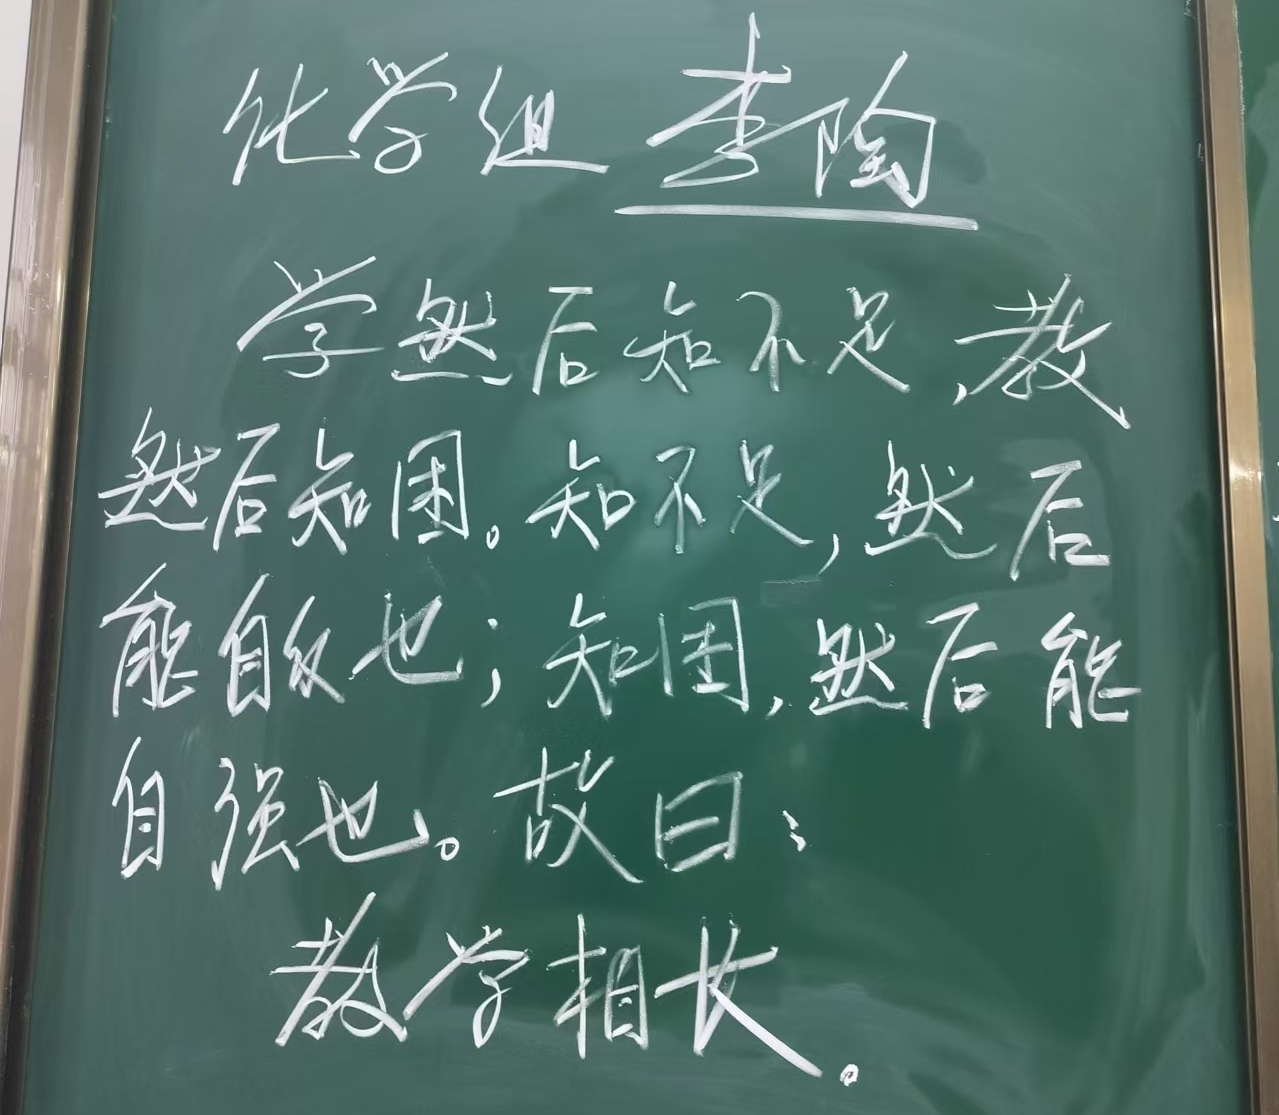 化学组 李陶
学然后知不足,教
然后知困。知不足,然后
能自反也;知困,然后能
自强也。故曰:
教学相长。